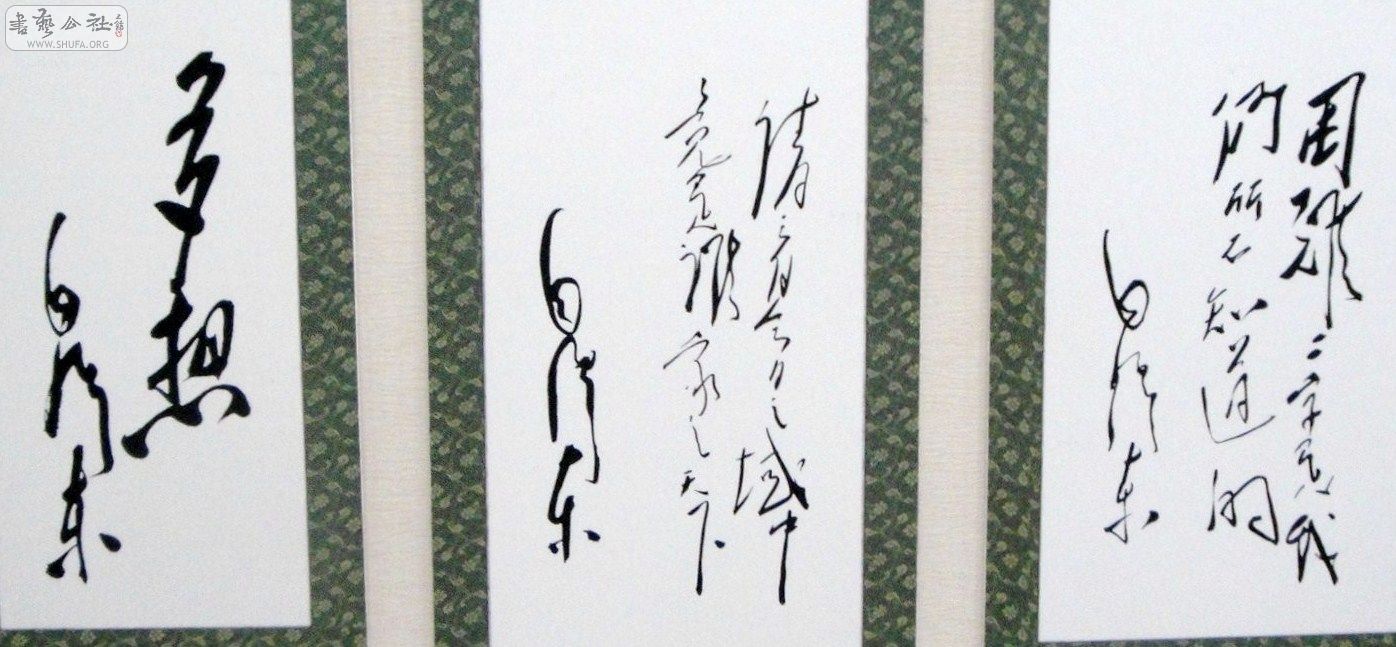 困难二字是我
们所不知道的
毛泽东
请看今日之域中
竟是谁家之天下
毛泽东
多想
毛泽东
書藝公社
WWW.SHUFA.ORG